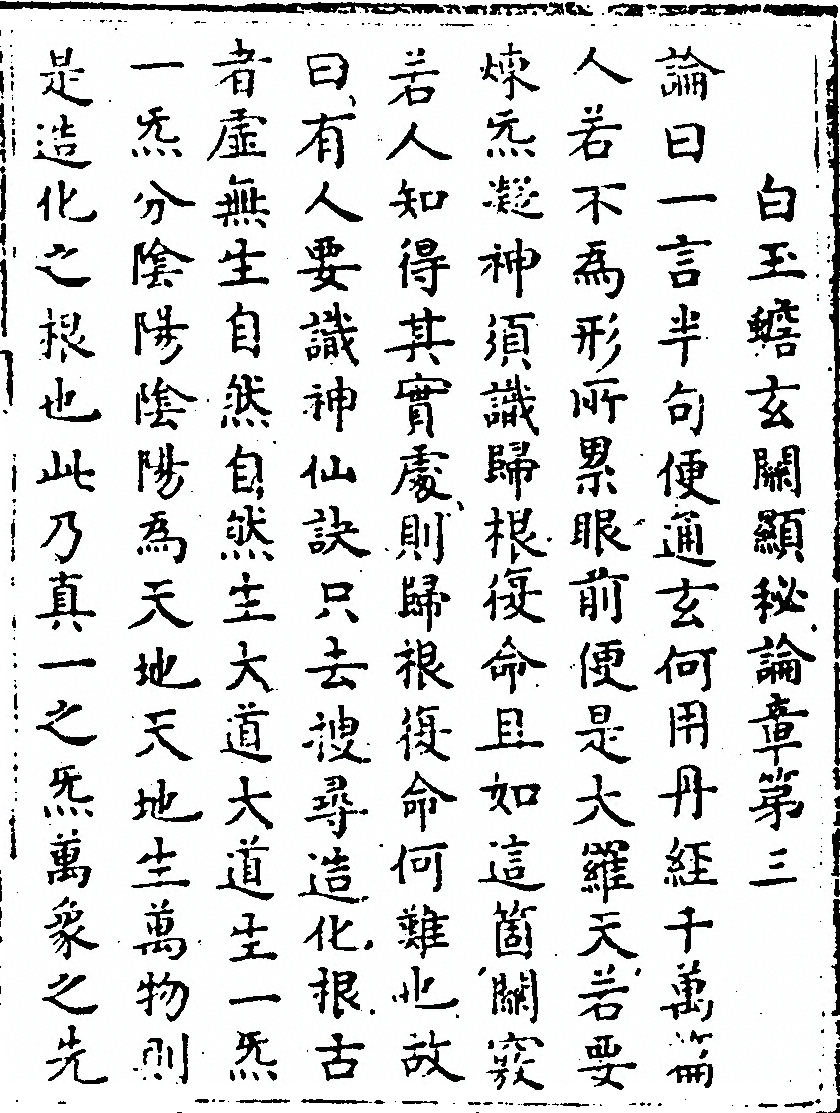 白玉蟾玄關顯秘論章第三
論曰一言半句便通玄何用丹經千萬篇
人若不為形所累眼前便是大羅天若要
煉炁凝神須識歸根復命且如這箇關竅
若人知得其實處則歸根復命何難也故
曰有人要識神仙訣只去搜尋造化根古
者虛無生自然自然生大道大道生一炁
一炁分陰陽陰陽為天地天地生萬物則
是造化之根也此乃真一之炁萬象之先